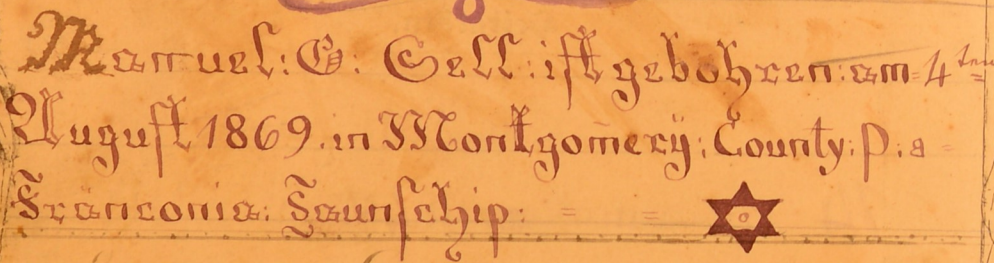 Manuel: G: Sell: ist gebohren: am 4ten
August 1869. in Montgomerÿ: County: P: a
Franconia: Taunschip: